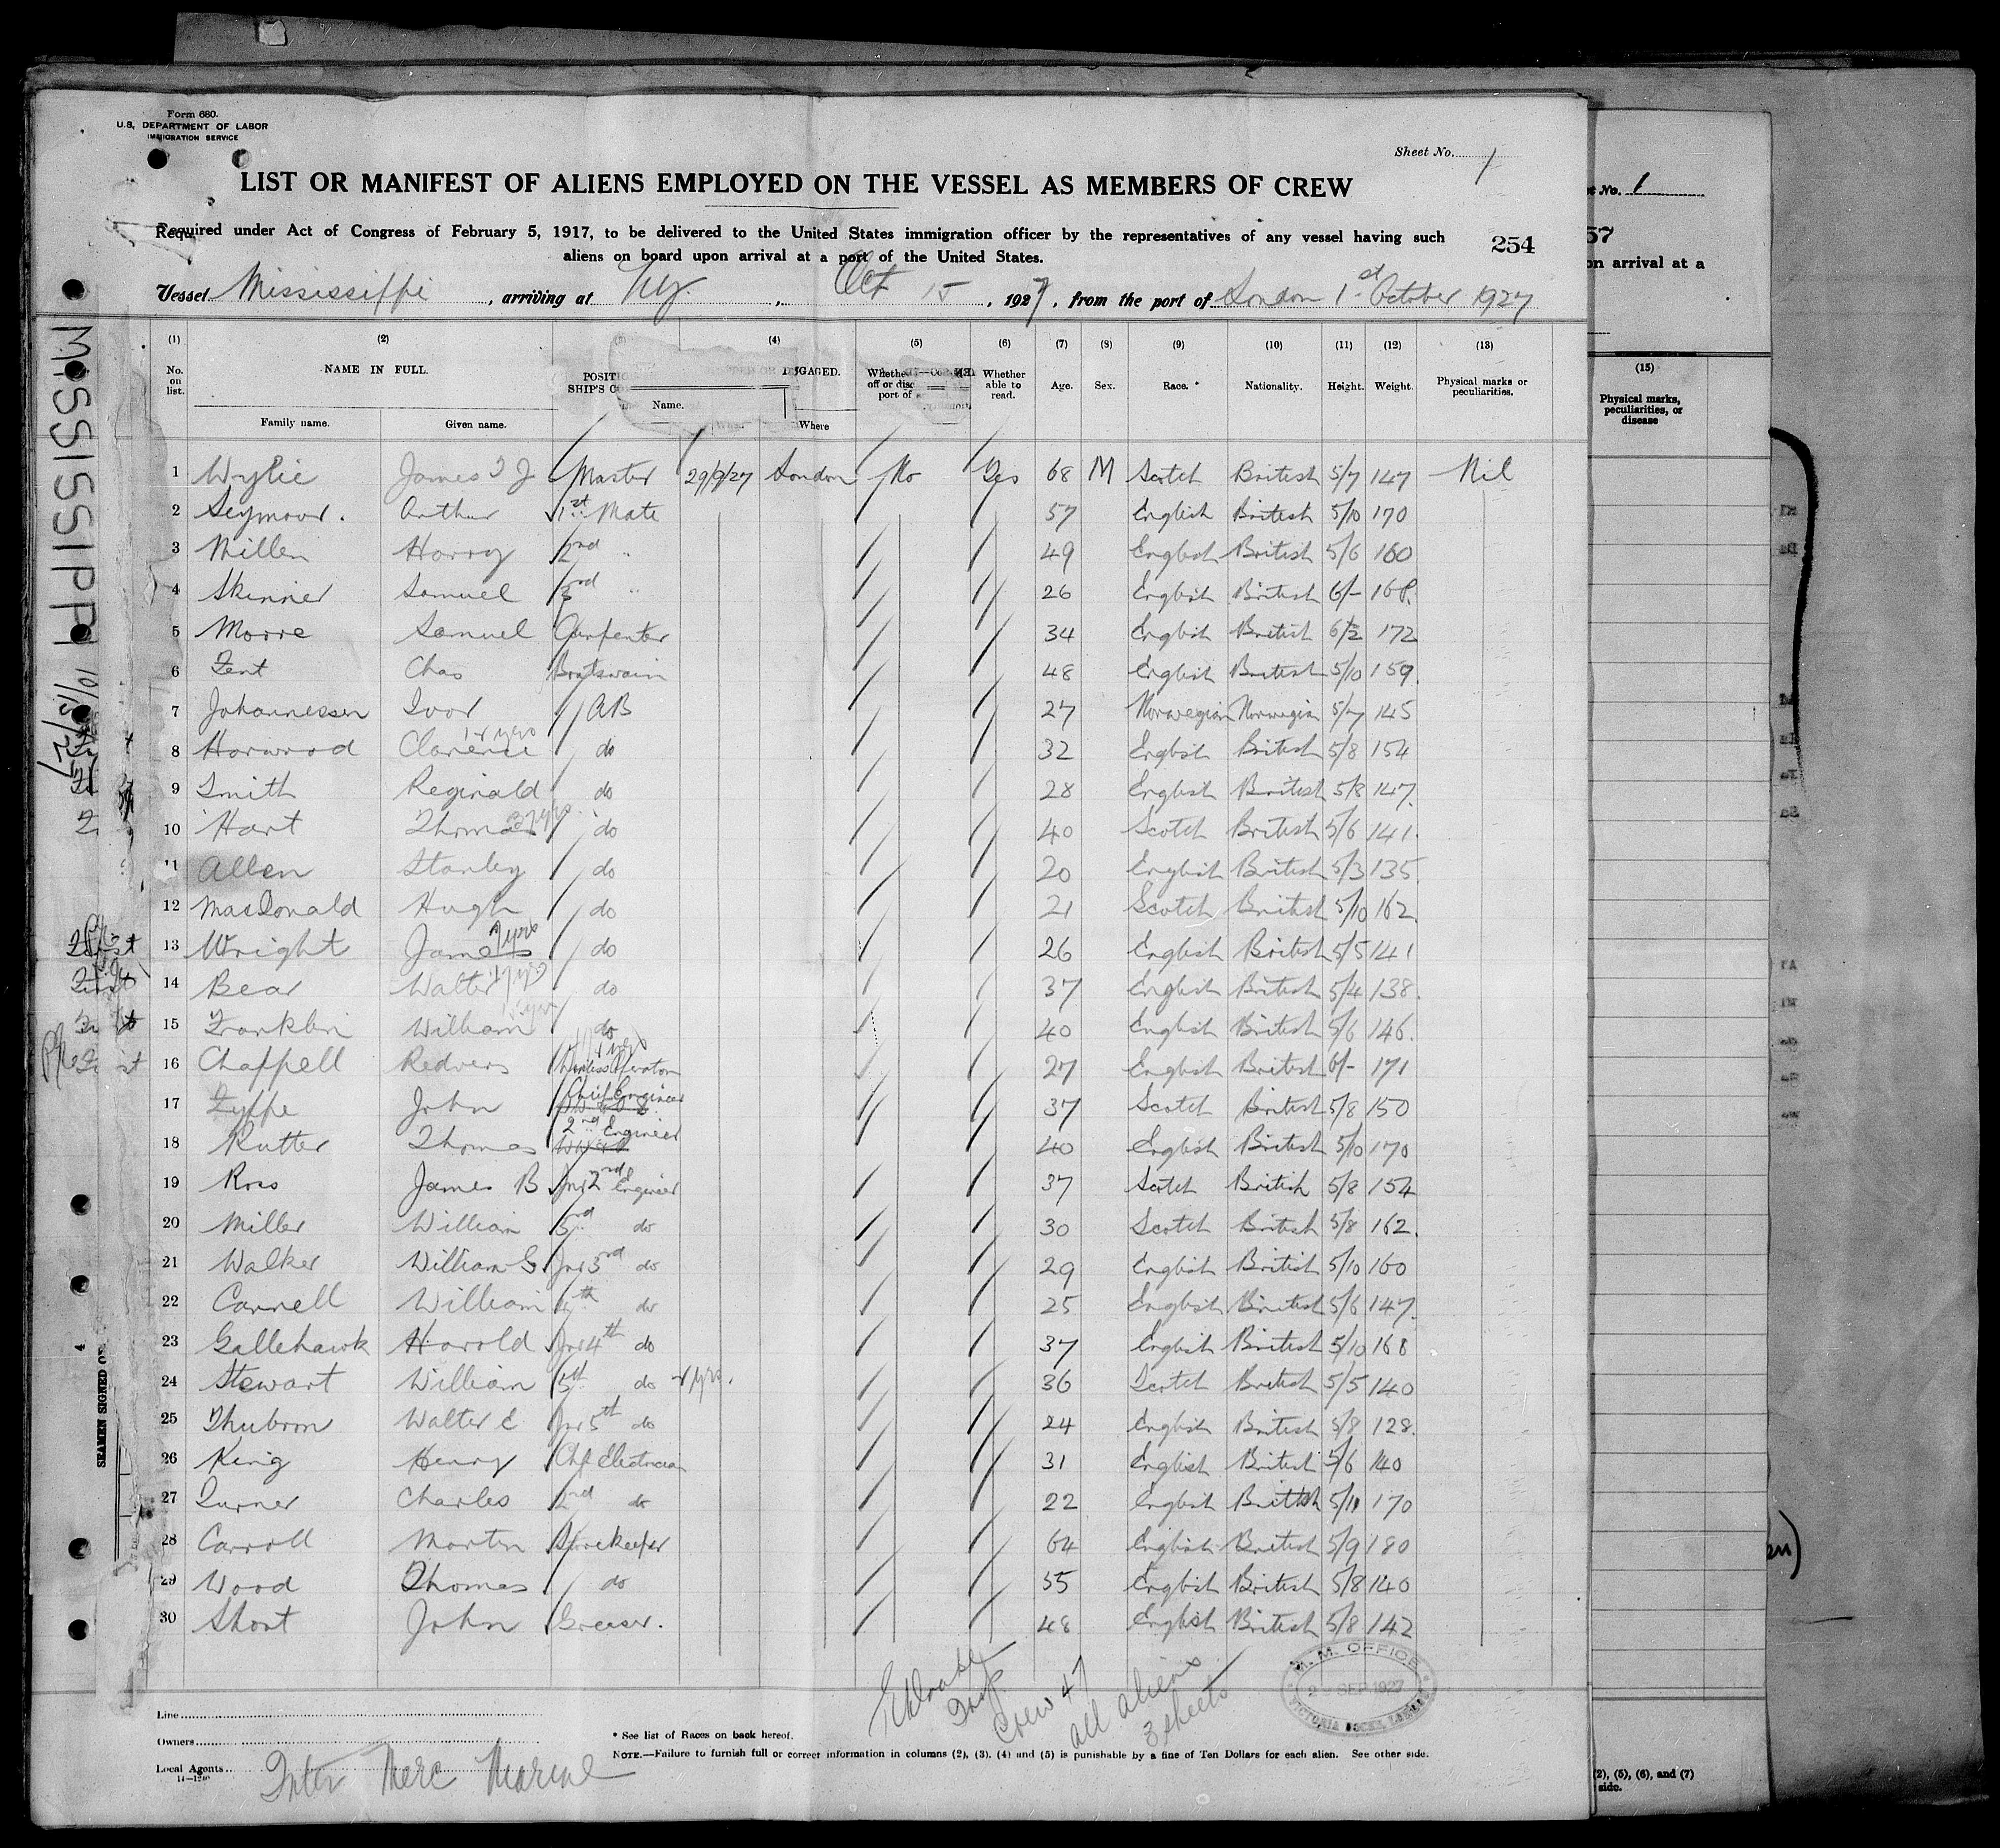 Form 680.
U.S. DEPARTMENT OF LABOR
IMMIGRATION SERVICE
Sheet No. 1
LIST OR MANIFEST OF ALIENS EMPLOYED ON THE VESSEL AS MEMBERS OF CREW
Required under Act of Congress of February 5, 1917, to be delivered to the United States immigration officer by the representatives of any vessel having such
aliens on board upon arrival at a port of the United States.
254
Vessel Mississippi, arriving at N.Y., Oct 15, 1927, from the port of London 1st October 1927
(1) (2) (4) (5) (6) (7) (8) (9) (10) (11) (12) (13)
No. on list. NAME IN FULL. Family name. Given name. Name. Where Whether able to read. Age. Sex. Race.* Nationality. Height. Weight. Physical marks or peculiarities.
1 Wylie James T J Master 29/9/27 London No Yes 68 M Scotch British 5/7 147 Nil
2 Seymour. Arthur 1st Mate 57 English British 5/10 170
3 Millen Harry 2nd " 49 English British 5/6 160
4 Skinner Samuel 3rd " 26 English British 6/- 168.
5 Moore Samuel Carpenter 34 English British 6/2 172
6 Fent Chas Boatswain 48 English British 5/10 159.
7 Johannessen Ivor AB 27 Norwegian Norwegian 5/7 145
8 Horwood Clarence do 32 English British 5/8 154
9 Smith Reginald do 28 English British 5/8 147.
10 Hart Thomas do 40 Scotch British 5/6 141.
11 Allen Stanley do 20 English British 5/3 135.
12 MacDonald Hugh do 21 Scotch British 5/10 162.
13 Wright James do 26 English British 5/5 141
14 Bear Walter do 37 English British 5/4 138.
15 Franklin William do 40 English British 5/6 146.
16 Chappell Redvers Wireless Operator 27 English British 6/- 171
17 Fyffe John Chief Engineer 37 Scotch British 5/8 150
18 Rutter Thomas 2nd Engineer 40 English British 5/10 170
19 Ross James B Jnr 2nd Engineer 37 Scotch British 5/8 154
20 Miller William 3rd do 30 Scotch British 5/8 162.
21 Walker William G Jnr 3rd do 29 English British 5/10 160
22 Cannell William 4th do 25 English British 5/6 147.
23 Gallehawk Harold Jnr 4th do 37 English British 5/10 168
24 Stewart William 5th do 4 yrs. 36 Scotch British 5/5 140
25 Thubron Walter E Jnr 5th do 24 English British 5/8 128.
26 King Henry Chf Electrician 31 English British 5/6 140
27 Turner Charles 2nd do 22 English British 5/11 170
28 Carroll Martin Storekeeper 64 English British 5/9 180
29 Wood Thomas do 55 English British 5/8 140
30 Short John Greaser. 48 English British 5/8 142
Crew 47
all aliens
3 sheets
M. M. OFFICE
SEP 1927
VICTORIA DOCKS, LONDON
Line
Owners
Local Agents Inter Merc Marine
14-1240
* See list of Races on back hereof.
NOTE.—Failure to furnish full or correct information in columns (2), (3), (4) and (5) is punishable by a fine of Ten Dollars for each alien. See other side.
MISSISSIPPI 10/15/27
SEAMEN SIGNED ON
No. 1
57
on arrival at a
(15)
Physical marks, peculiarities, or disease
(2), (5), (6), and (7)
side.